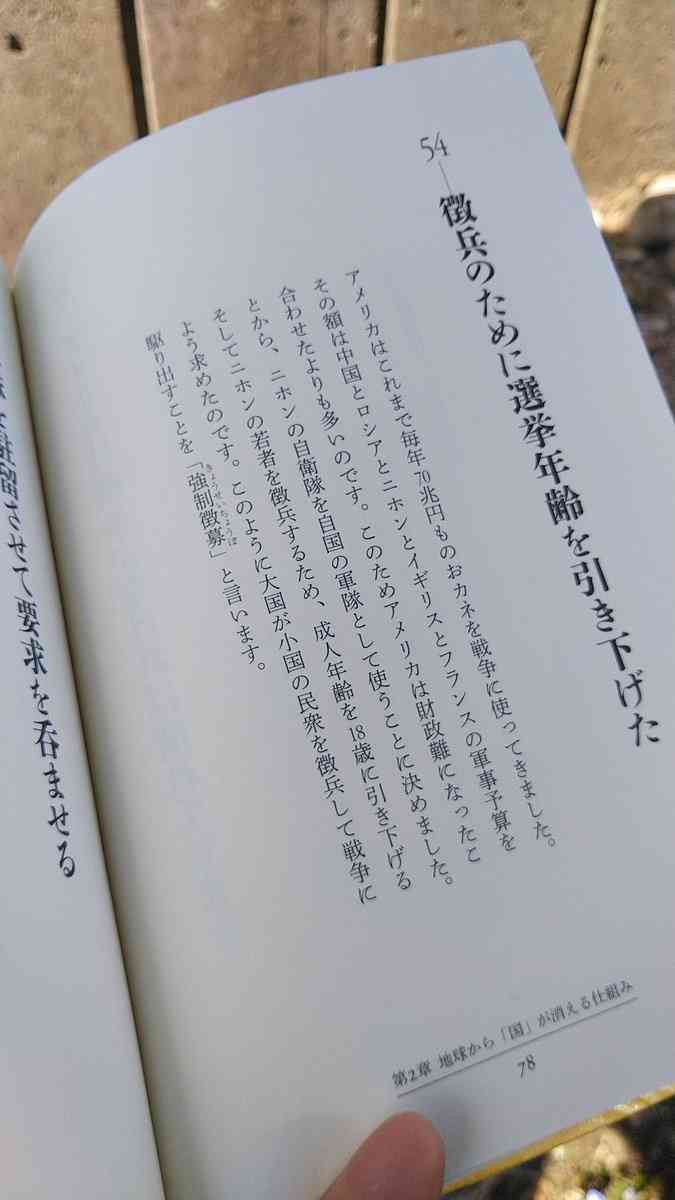 54―徴兵のために選挙年齢を引き下げた
アメリカはこれまで毎年70兆円ものおカネを戦争に使ってきました。
その額は中国とロシアとニホンとイギリスとフランスの軍事予算を
合わせたよりも多いのです。このためアメリカは財政難になったこ
とから、ニホンの自衛隊を自国の軍隊として使うことに決めました。
そしてニホンの若者を徴兵するため、成人年齢を18歳に引き下げる
よう求めたのです。このように大国が小国の民衆を徴兵して戦争に
きょうせいちょうぼ
駆り出すことを「強制徴募」と言います。
第2章 地球から「国」が消える仕組み
78
留させて要求を呑ませる